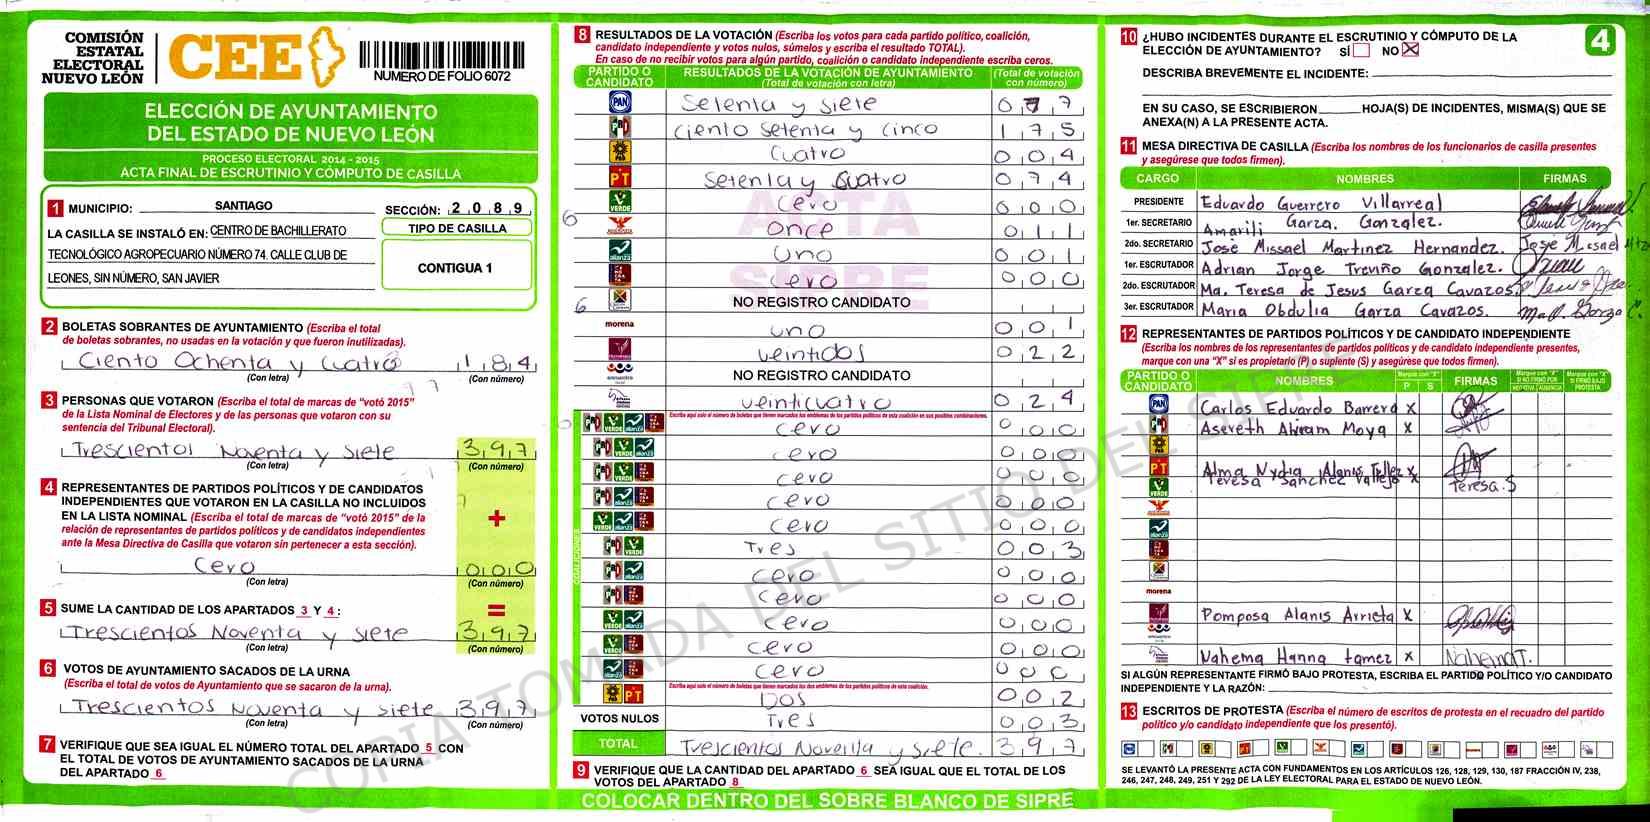 COMISIÓN
ESTATAL
ELECTORAL
NUEVO LEÓN
CEE
NUMERO DE FOLIO 6072
ELECCIÓN DE AYUNTAMIENTO
DEL ESTADO DE NUEVO LEÓN
PROCESO ELECTORAL 2014 - 2015
ACTA FINAL DE ESCRUTINIO Y CÓMPUTO DE CASILLA
1 MUNICIPIO: SANTIAGO SECCIÓN: 2 0 8 9
LA CASILLA SE INSTALÓ EN: CENTRO DE BACHILLERATO
TECNOLÓGICO AGROPECUARIO NÚMERO 74. CALLE CLUB DE
LEONES, SIN NÚMERO, SAN JAVIER
TIPO DE CASILLA
CONTIGUA 1
2 BOLETAS SOBRANTES DE AYUNTAMIENTO (Escriba el total
de boletas sobrantes, no usadas en la votación y que fueron inutilizadas).
Ciento Ochenta y Cuatro 1 8 4
(Con letra) (Con número)
3 PERSONAS QUE VOTARON (Escriba el total de marcas de "votó 2015"
de la Lista Nominal de Electores y de las personas que votaron con su
sentencia del Tribunal Electoral).
Trescientos Noventa y Siete 3 9 7
(Con letra) (Con número)
4 REPRESENTANTES DE PARTIDOS POLÍTICOS Y DE CANDIDATOS
INDEPENDIENTES QUE VOTARON EN LA CASILLA NO INCLUIDOS
EN LA LISTA NOMINAL (Escriba el total de marcas de "votó 2015" de la
relación de representantes de partidos políticos y de candidatos independientes
ante la Mesa Directiva de Casilla que votaron sin pertenecer a esta sección).
+
Cero 0 0 0
(Con letra) (Con número)
5 SUME LA CANTIDAD DE LOS APARTADOS 3 Y 4 : =
Trescientos Noventa y siete 3 9 7
(Con letra) (Con número)
6 VOTOS DE AYUNTAMIENTO SACADOS DE LA URNA
(Escriba el total de votos de Ayuntamiento que se sacaron de la urna).
Trescientos Noventa y siete 3 9 7
(Con letra) (Con número)
7 VERIFIQUE QUE SEA IGUAL EL NÚMERO TOTAL DEL APARTADO 5 CON
EL TOTAL DE VOTOS DE AYUNTAMIENTO SACADOS DE LA URNA
DEL APARTADO 6
8 RESULTADOS DE LA VOTACIÓN (Escriba los votos para cada partido político, coalición,
candidato independiente y votos nulos, súmelos y escriba el resultado TOTAL).
En caso de no recibir votos para algún partido, coalición o candidato independiente escriba ceros.
PARTIDO O CANDIDATO RESULTADOS DE LA VOTACIÓN DE AYUNTAMIENTO (Total de votación con letra) (Total de votación con número)
PAN Setenta y siete 0 7 7
PRD Ciento Setenta y Cinco 1 7 5
Cuatro 0 0 4
PT Setenta y Cuatro 0 7 4
VERDE Cero 0 0 0
Once 0 1 1
alianza Uno 0 0 1
Cero 0 0 0
NO REGISTRO CANDIDATO
morena uno 0 0 1
veintidos 0 2 2
NO REGISTRO CANDIDATO
veinticuatro 0 2 4
Cero 0 0 0
Cero 0 0 0
Cero 0 0 0
Cero 0 0 0
Cero 0 0 0
Tres 0 0 3
Cero 0 0 0
Cero 0 0 0
Cero 0 0 0
Cero 0 0 0
Cero 0 0 0
Dos 0 0 2
VOTOS NULOS Tres 0 0 3
TOTAL Trescientos Noventa y siete. 3 9 7
COALICIONES
ACTA
SIPRE
9 VERIFIQUE QUE LA CANTIDAD DEL APARTADO 6 SEA IGUAL QUE EL TOTAL DE LOS
VOTOS DEL APARTADO 8
COLOCAR DENTRO DEL SOBRE BLANCO DE SIPRE
10 ¿HUBO INCIDENTES DURANTE EL ESCRUTINIO Y CÓMPUTO DE LA
ELECCIÓN DE AYUNTAMIENTO? SÍ NO X
4
DESCRIBA BREVEMENTE EL INCIDENTE:
EN SU CASO, SE ESCRIBIERON HOJA(S) DE INCIDENTES, MISMA(S) QUE SE
ANEXA(N) A LA PRESENTE ACTA.
11 MESA DIRECTIVA DE CASILLA (Escriba los nombres de los funcionarios de casilla presentes
y asegúrese que todos firmen).
CARGO NOMBRES FIRMAS
PRESIDENTE Eduardo Guerrero Villarreal
1er. SECRETARIO Amarili Garza Gonzalez.
2do. SECRETARIO José Missael Martinez Hernandez.
1er. ESCRUTADOR Adrian Jorge Treviño Gonzalez.
2do. ESCRUTADOR Ma. Teresa de Jesus Garza Cavazos.
3er. ESCRUTADOR Maria Obdulia Garza Cavazos.
12 REPRESENTANTES DE PARTIDOS POLÍTICOS Y DE CANDIDATO INDEPENDIENTE
(Escriba los nombres de los representantes de partidos políticos y de candidato independiente presentes,
marque con una "X" si es propietario (P) o suplente (S) y asegúrese que todos firmen).
PARTIDO O CANDIDATO NOMBRES P S FIRMAS
PAN Carlos Eduardo Barrera X
Asereth Abiram Moya X
PT Alma Nydia Alanis Tellez X
VERDE Teresa Sanchez Vallejo X Teresa. S
morena
Pomposa Alanis Arrieta X
Nahema Hanna tamez X Nahema T.
SI ALGÚN REPRESENTANTE FIRMÓ BAJO PROTESTA, ESCRIBA EL PARTIDO POLÍTICO Y/O CANDIDATO
INDEPENDIENTE Y LA RAZÓN:
13 ESCRITOS DE PROTESTA (Escriba el número de escritos de protesta en el recuadro del partido
político y/o candidato independiente que los presentó).
SE LEVANTÓ LA PRESENTE ACTA CON FUNDAMENTOS EN LOS ARTÍCULOS 126, 128, 129, 130, 187 FRACCIÓN IV, 238,
246, 247, 248, 249, 251 Y 292 DE LA LEY ELECTORAL PARA EL ESTADO DE NUEVO LEÓN.
COPIA TOMADA DEL SITIO DEL SIPRE